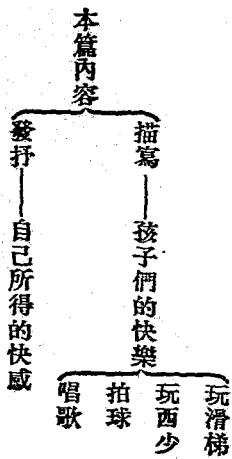 本篇內容
描寫
孩子們的快樂
玩滑梯
玩西少
拍球
唱歌
發抒
自己所得的快感